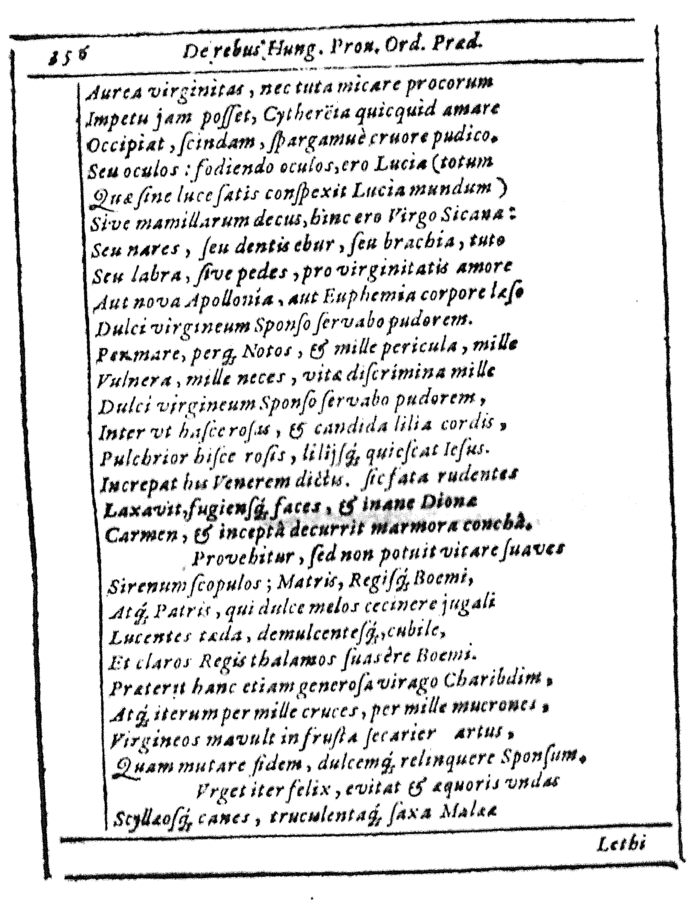 356 De rebus Hung. Prou. Ord. Præd.
Aurea virginitas, nec tuta micare procorum
Impetu jam posset, Cytherëia quicquid amare
Occipiat, scindam, spargamuè cruore pudico.
Seu oculos: fodiendo oculos, ero Lucia (totum
Quæ sine luce satis conspexit Lucia mundum)
Sive mamillarum decus, hinc ero Virgo Sicana:
Seu nares, seu dentis ebur, seu brachia, tuto
Seu labra, sive pedes, pro virginitatis amore
Aut nova Apollonia, aut Euphemia corpore læso
Dulci virgineum Sponso servabo pudorem.
Per mare, perq́; Notos, & mille pericula, mille
Vulnera, mille neces, vitæ discrimina mille
Dulci virgineum Sponso servabo pudorem,
Inter vt hasce rosas, & candida lilia cordis,
Pulchrior hisce rosis, lilijsq́; quiescat Iesus.
Increpat his Venerem dictis. sic fata rudentes
Laxavit, fugiensq́; faces, & inane Dionæ
Carmen, & inceptâ decurrit marmora conchâ.
Provehitur, sed non potuit vitare suaves
Sirenum scopulos; Matris, Regisq́; Boemi,
Atq́; Patris, qui dulce melos cecinere jugali
Lucentes tæda, demulcentesq́;, cubile,
Et claros Regis thalamos suasère Boemi.
Præterit hanc etiam generosa virago Charibdim,
Atq́; iterum per mille cruces, per mille mucrones,
Virgineos mavult in frusta secarier artus,
Quam mutare fidem, dulcemq́; relinquere Sponsum.
Vrget iter felix, evitat & æquoris vndas
Scyllæosq́; canes, truculentaq́; saxa Malææ
Lethi